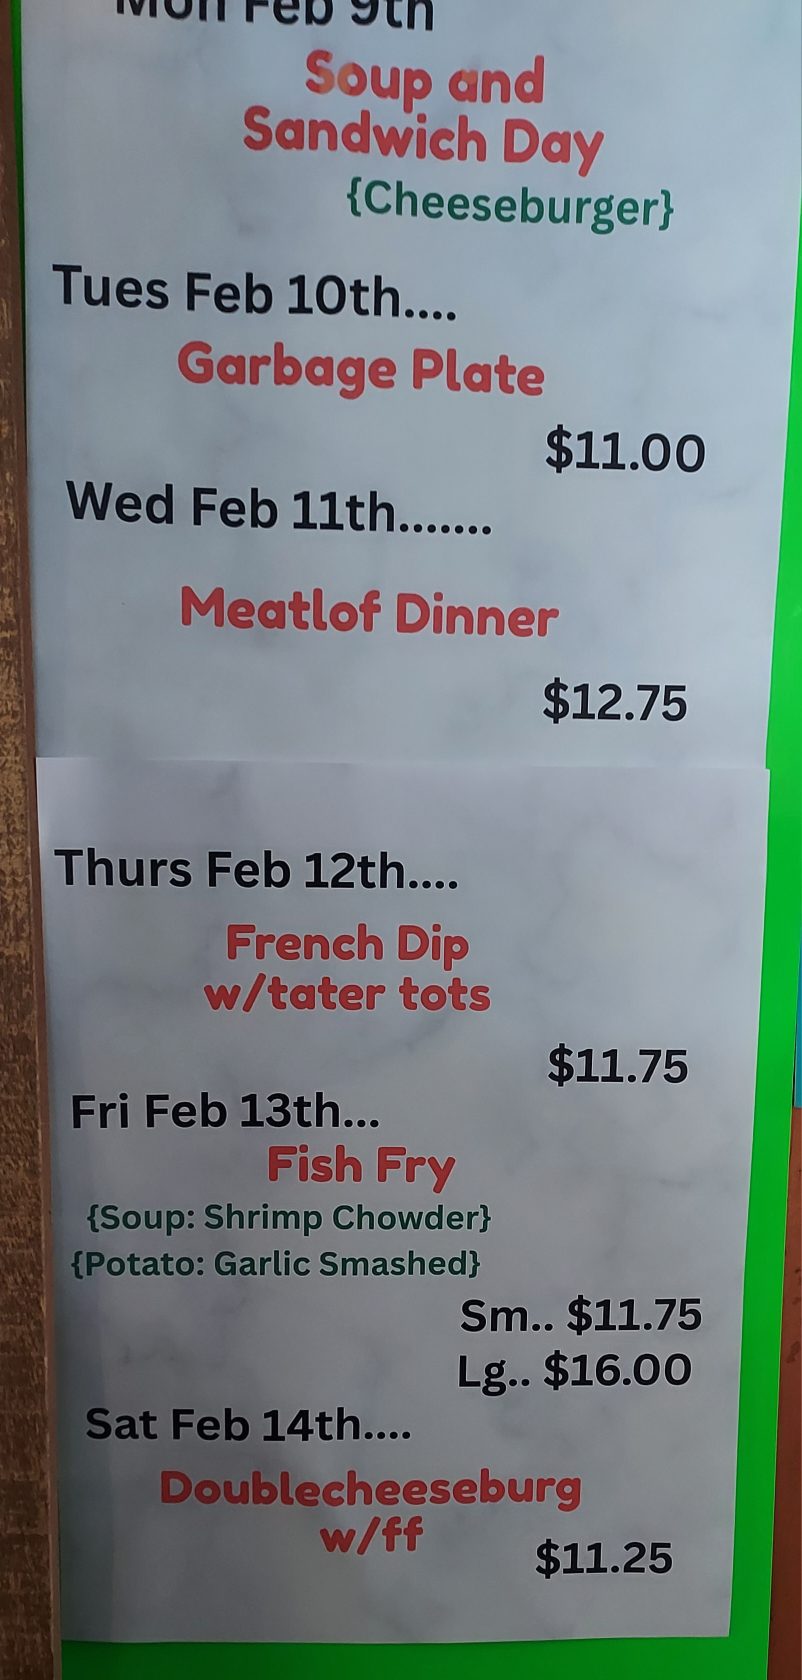 Mon Feb 9th
Soup and
Sandwich Day
{Cheeseburger}
Tues Feb 10th....
Garbage Plate
$11.00
Wed Feb 11th.......
Meatlof Dinner
$12.75
Thurs Feb 12th....
French Dip
w/tater tots
$11.75
Fri Feb 13th...
Fish Fry
{Soup: Shrimp Chowder}
{Potato: Garlic Smashed}
Sm.. $11.75
Lg.. $16.00
Sat Feb 14th....
Doublecheeseburg
w/ff
$11.25